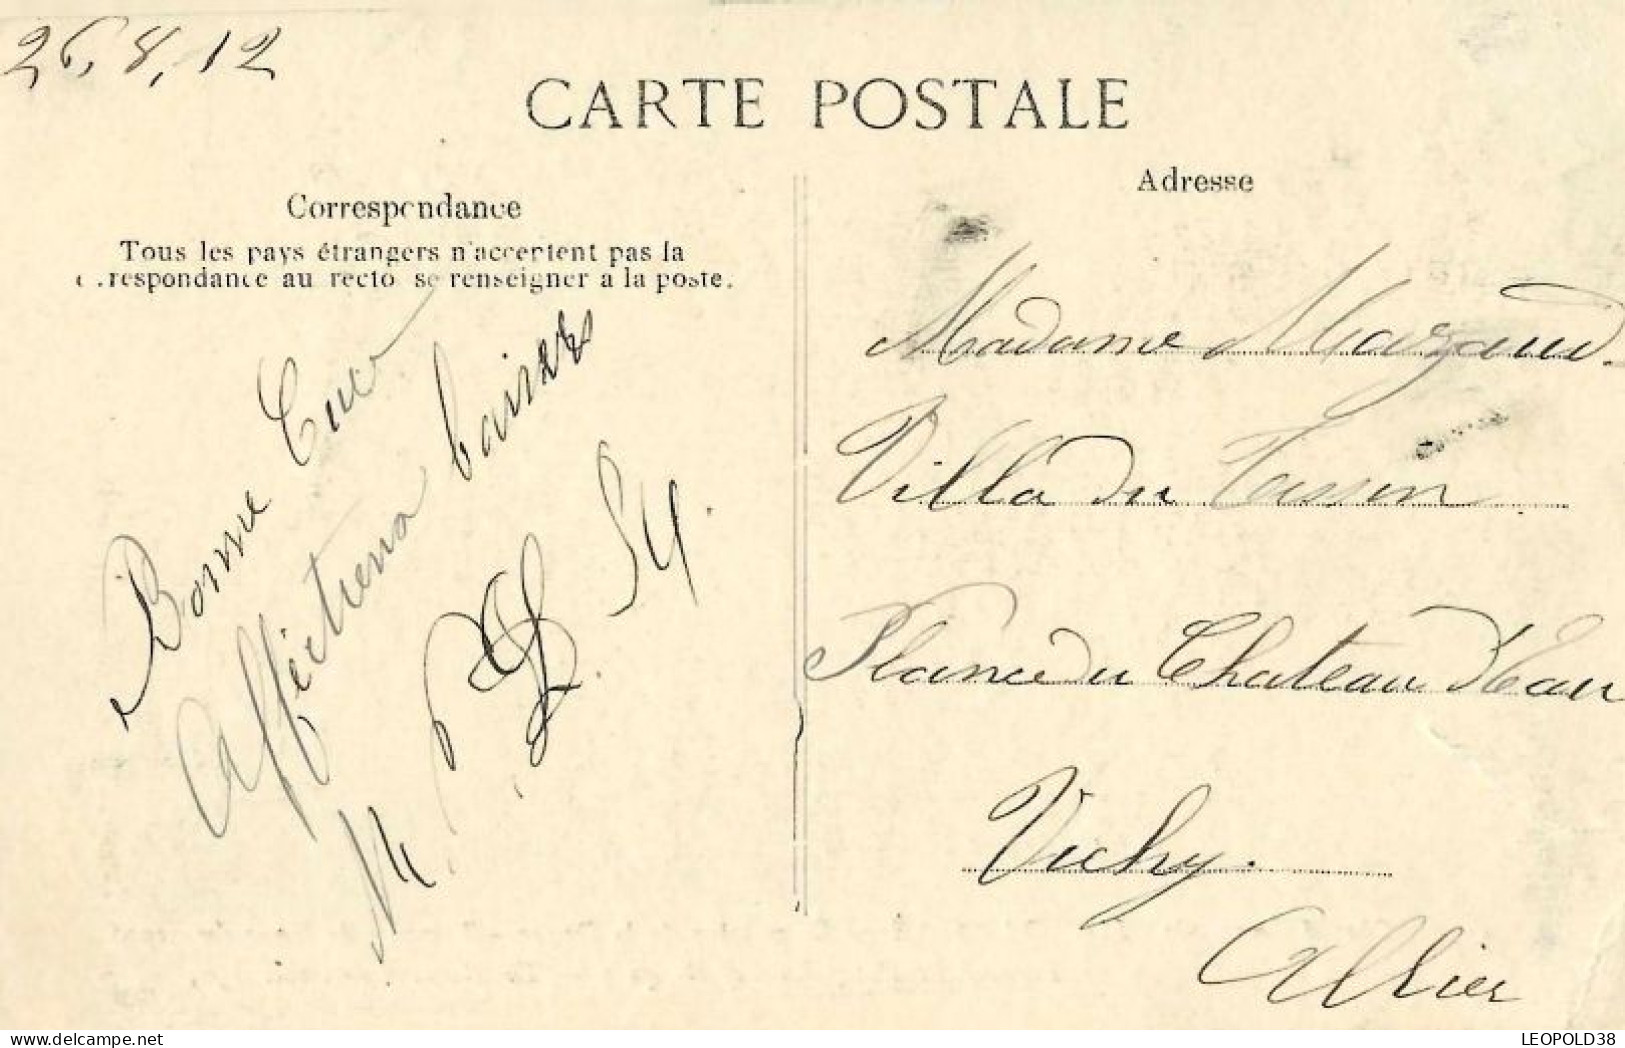 26, 8, 12
CARTE POSTALE
Correspondance
Tous les pays étrangers n'acceptent pas la
correspondance au recto se renseigner a la poste.
Bonne Cure
Affectiena baisers
M.
Adresse
Madame Mazaud.
Villa du Tassin
Place du Chateau d'Eau
Vichy.
Allier
LEOPOLD38